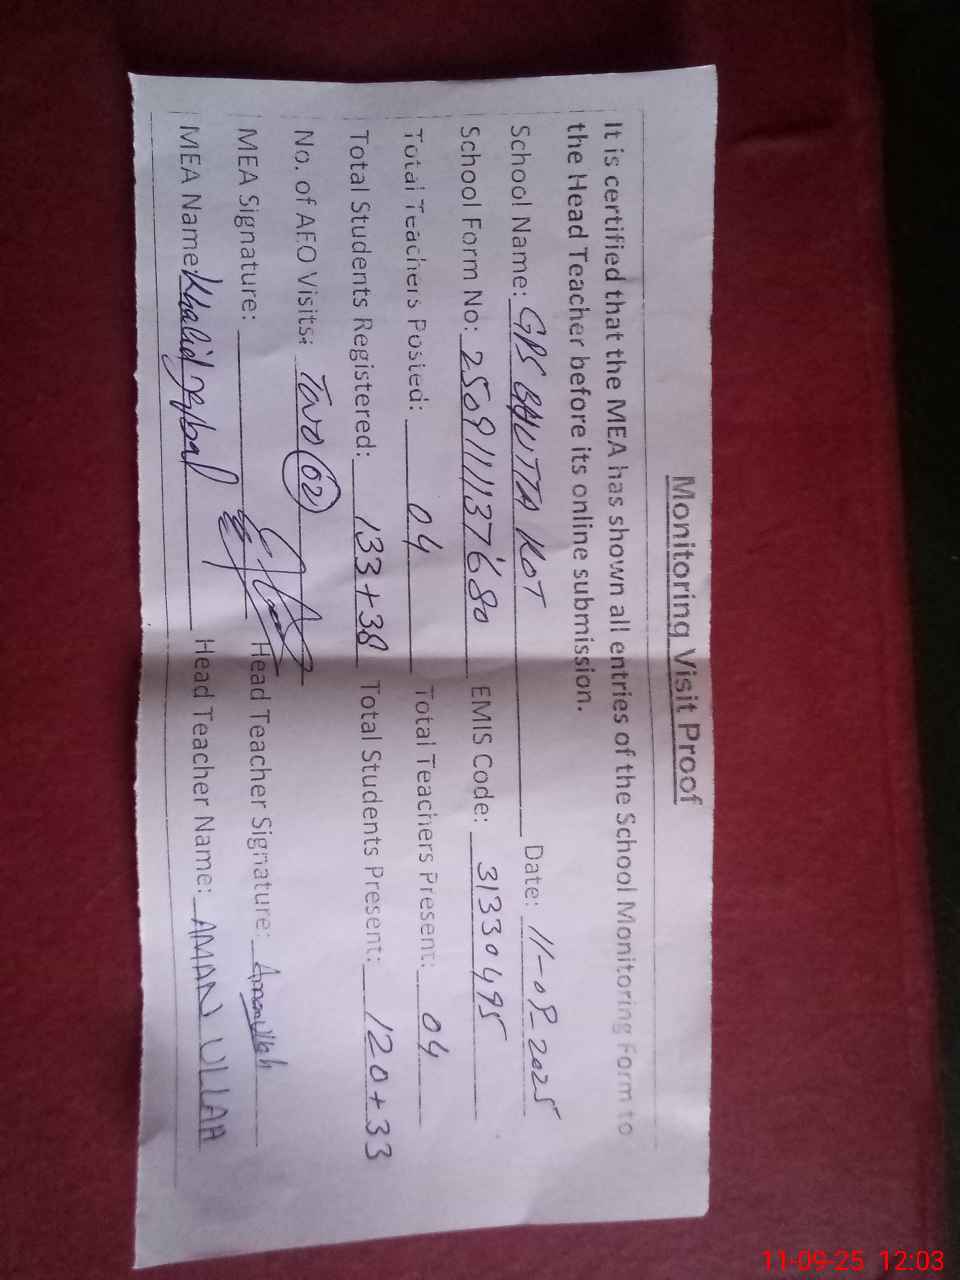 Monitoring Visit Proof
It is certified that the MEA has shown all entries of the School Monitoring Form to
the Head Teacher before its online submission.
School Name: GPS BHUTTA KOT Date: 11-09-2025
School Form No: 25091111137680 EMIS Code: 31330495
Total Teachers Posted: 04 Total Teachers Present: 04
Total Students Registered: 133+38 Total Students Present: 120+33
No. of AEO Visits: Two 02
MEA Signature: Head Teacher Signature: Amanullah
MEA Name: Khalid Iqbal Head Teacher Name: AMAN ULLAH
11-09-25 12:03